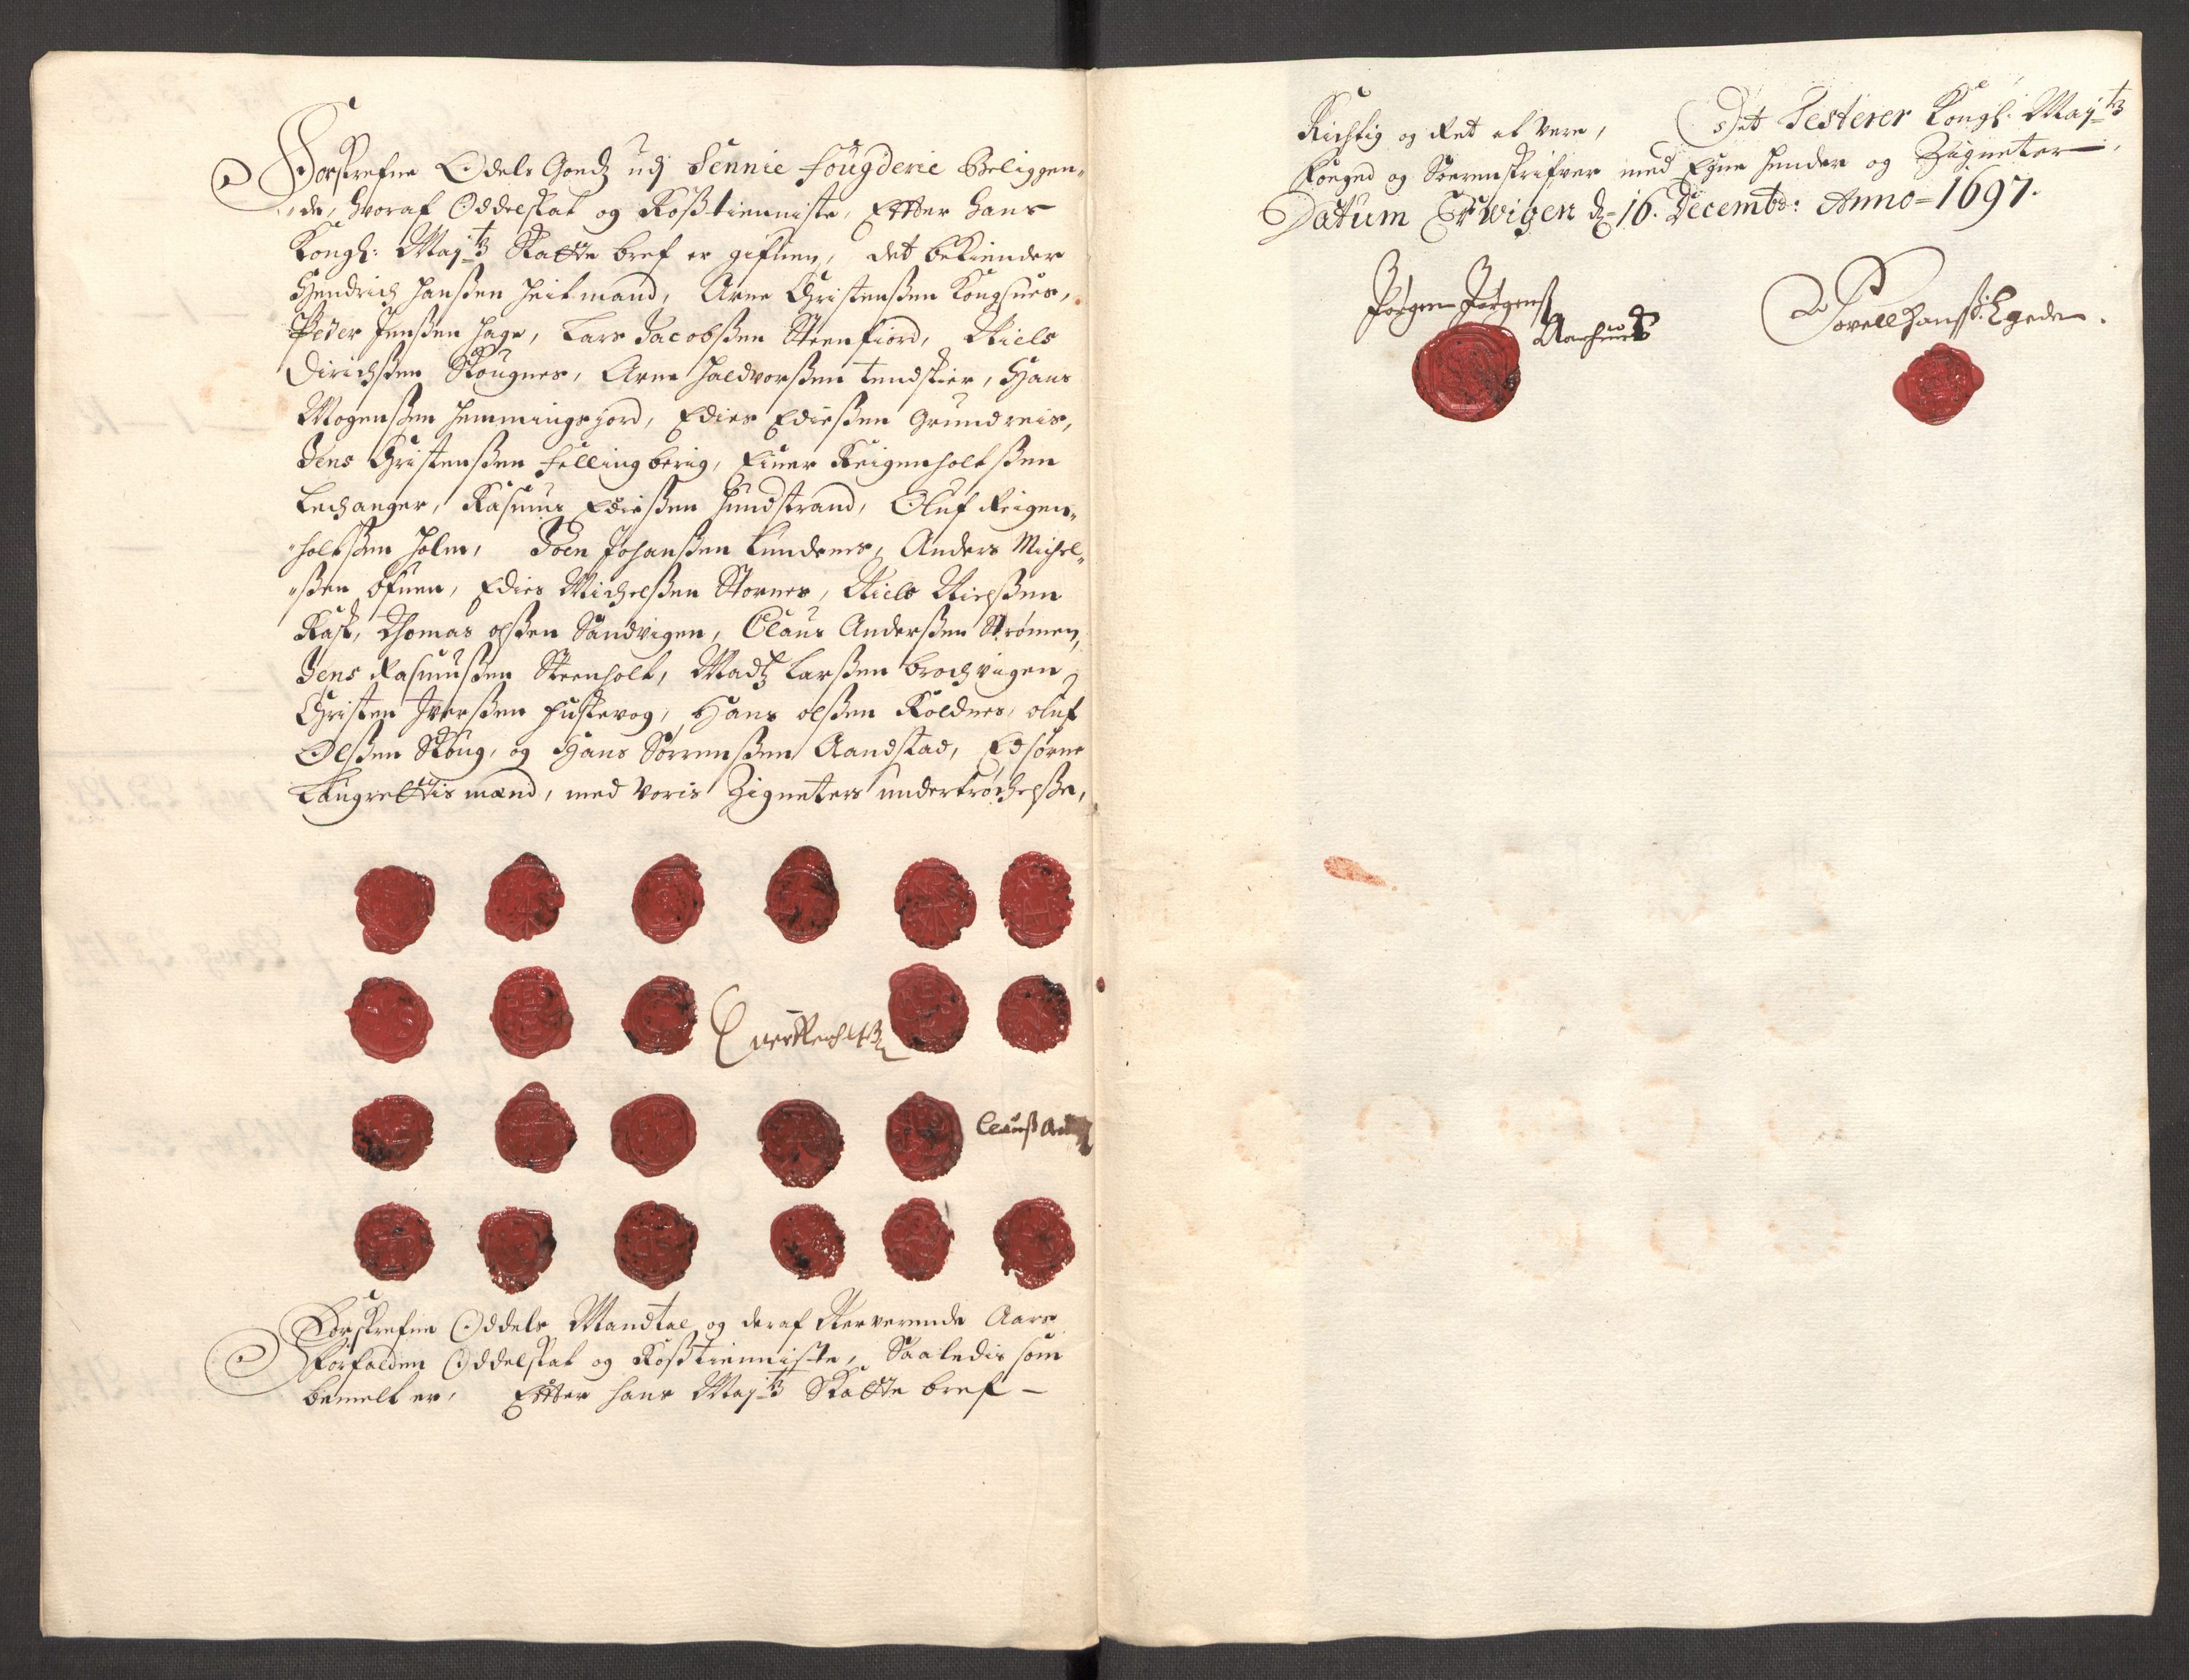 Forskrefne Odels Goedz udj Sennie fougderie Beliggen„
„de, hvoraf Oddelskat og Roßtienniste, Etter hans
Kongl: Maÿtz Skatte bref er gifuen, det bekiender
Hendrich Hanßen Heitmand, Arne Christenßen Kongsnes,
Peder Jenßen Hage, Lars Jacobßen Steenfiord, Niels
Dirichßen Skougnes, Arne Haldvorßen tendskier, Hans
Mogenßen Hemmingshord, Edies Edießen Grundreis,
Jens Christenßen fellingberig, Einer Reigenholtßen
Lechanger, Rasmus Edießen Hundstrand, Oluf Reigen„
„holtßen Holm, Joen Johanßen Lundenes, Anders Michel„
„ßen Ofnen, Edies Michelßen Stornes, Niels Nielßen
Rask, Thomas olßen Sandvigen, Claus Anderßen Strømen,
Jens Rasmusßen Steenholt, Madz Larßen brochvigen,
Christen Iverßen fuskevog, Hans olßen Koldnes, oluf
Olßen Skoug, og Hans Sørrenßen Aandstad, Edsorne
Laugrettis mænd, med voris Zigneters undertrøchelße,
Claus And
Forskrefne Oddels Mandtal og deraf Nerverende Aars
Forfalden Oddelskat og Roßtienniste, Saaledis som
bemelt er, Etter hans Maÿtz Skatte bref –
Richtig og Ret at vere, Det Testerer Kongl: Maÿtz
fouged og Sorenskrifver med Egne hender og Zigneter,
Datum Erwigen d. 16. Decembr: Anno = 1697.
Jørgen Jørgens
Povell Hanß: Egede.